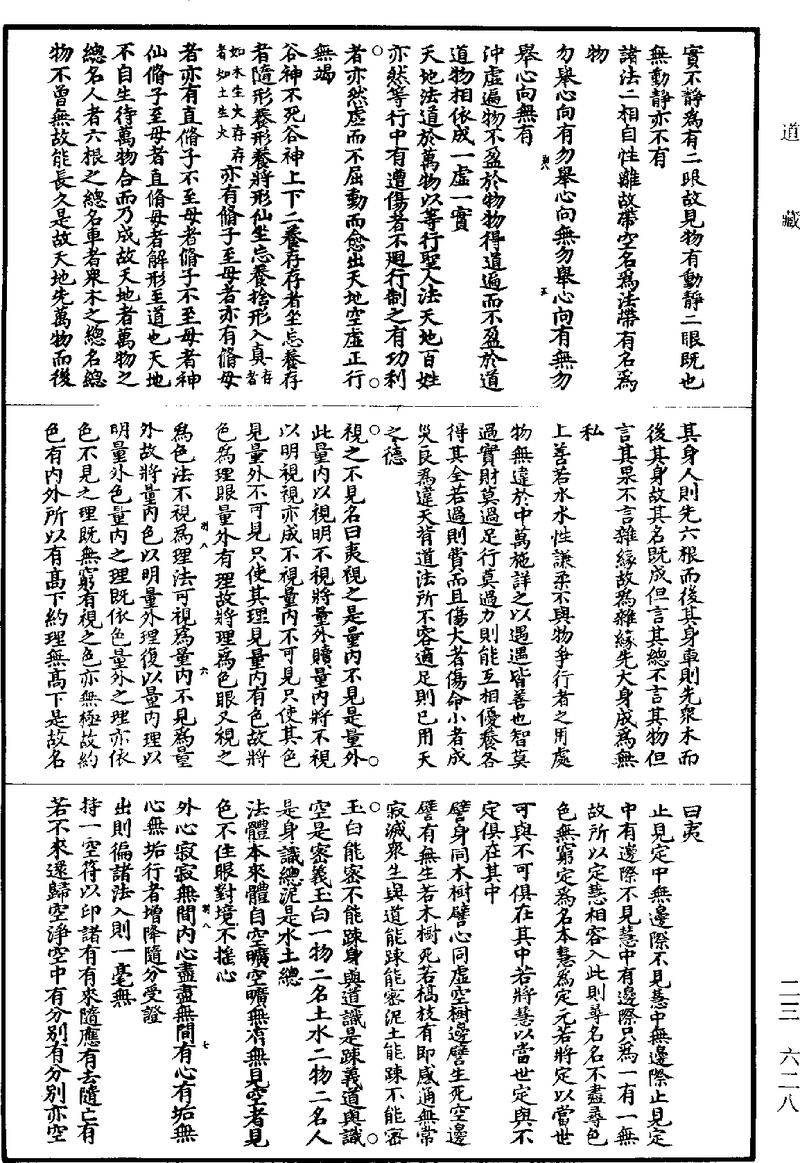 道藏
實不靜為有二眼故見物有動靜二眼既也
無動靜亦不有
諸法二相自性離故帶空名為法帶有名為
物
勿舉心向有勿舉心向無勿舉心向有無勿
舉心向無有
沖虛遍物不盈於物物得道遍而不盈於道
道物相依成一虛一實
天地法道於萬物以等行聖人法天地百姓
亦然等行中有遭傷者不迴行制之有功利
者亦然虛而不屈動而愈出天地空虛正行
無竭
谷神不死谷神上下二養存存者坐忘養存
者隨形養形養將形仙坐忘養捨形入真存者
如木生火存存
者如土生火
亦有脩子至母者亦有脩母
者亦有直脩子不至母者脩子不至母者神
仙脩子至母者直脩母者解形至道也天地
不自生待萬物合而乃成故天地者萬物之
總名人者六根之總名車者眾木之總名總
物不曾無故能長久是故天地先萬物而後
其身人則先六根而後其身車則先眾木而
後其身故其名既成但言其總不言其物但
言其果不言雜緣故為雜緣先大身成為無
私
上善若水水性謙柔不與物爭行者之用處
物無違於中萬施詳之以遇遇皆善也智莫
過實財莫過足行莫過力則能互相優養各
得其全若過則費而且傷大者傷命小者成
災反為違天背道法所不容適足則已用天
之德
視之不見名曰夷視之是量內不見是量外
此量內以視明不視將量外贖量內將不視
以明視視亦成不視量內不可見只使其色
見量外不可見只使其理見量內有色故將
色為理眼量外有理故將理為色眼又視之
為色法不視為理法可視為量內不見為量
外故將量內色以明量外理復以量內理以
明量外色量內之理既依色量外之理亦依
色不見之理既無窮有視之色亦無極故約
色有內外所以有高下約理無高下是故名
曰夷
止見定中無邊際不見慧中無邊際止見定
中有邊際不見慧中有邊際只為一有一無
故所以定慧相容入此則尋名名不盡尋色
色無窮定為名本慧為定元若將定以當世
可與不可俱在其中若將慧以當世定與不
定俱在其中
譬身同木樹譬心同虛空樹邊譬生死空邊
譬有無生若木樹死若槁枝有即感通無常
寂滅眾生與道能踈能密泥土能踈不能密
玉白能密不能踈身與道識是踈義道與識
空是密義玉白一物二名土水二物二名人
是身識總泥是水土總
法體本來體自空曠空曠無有無見空者見
色不住眼對境不搖心
外心寂寂無間內心盡盡無間有心有垢無
心無垢行者增降隨分受證
出則徧諸法入則一毫無
持一空符以印諸有有來隨應有去隨亡有
若不來還歸空淨空中有分別有分別亦空
二三
六二八